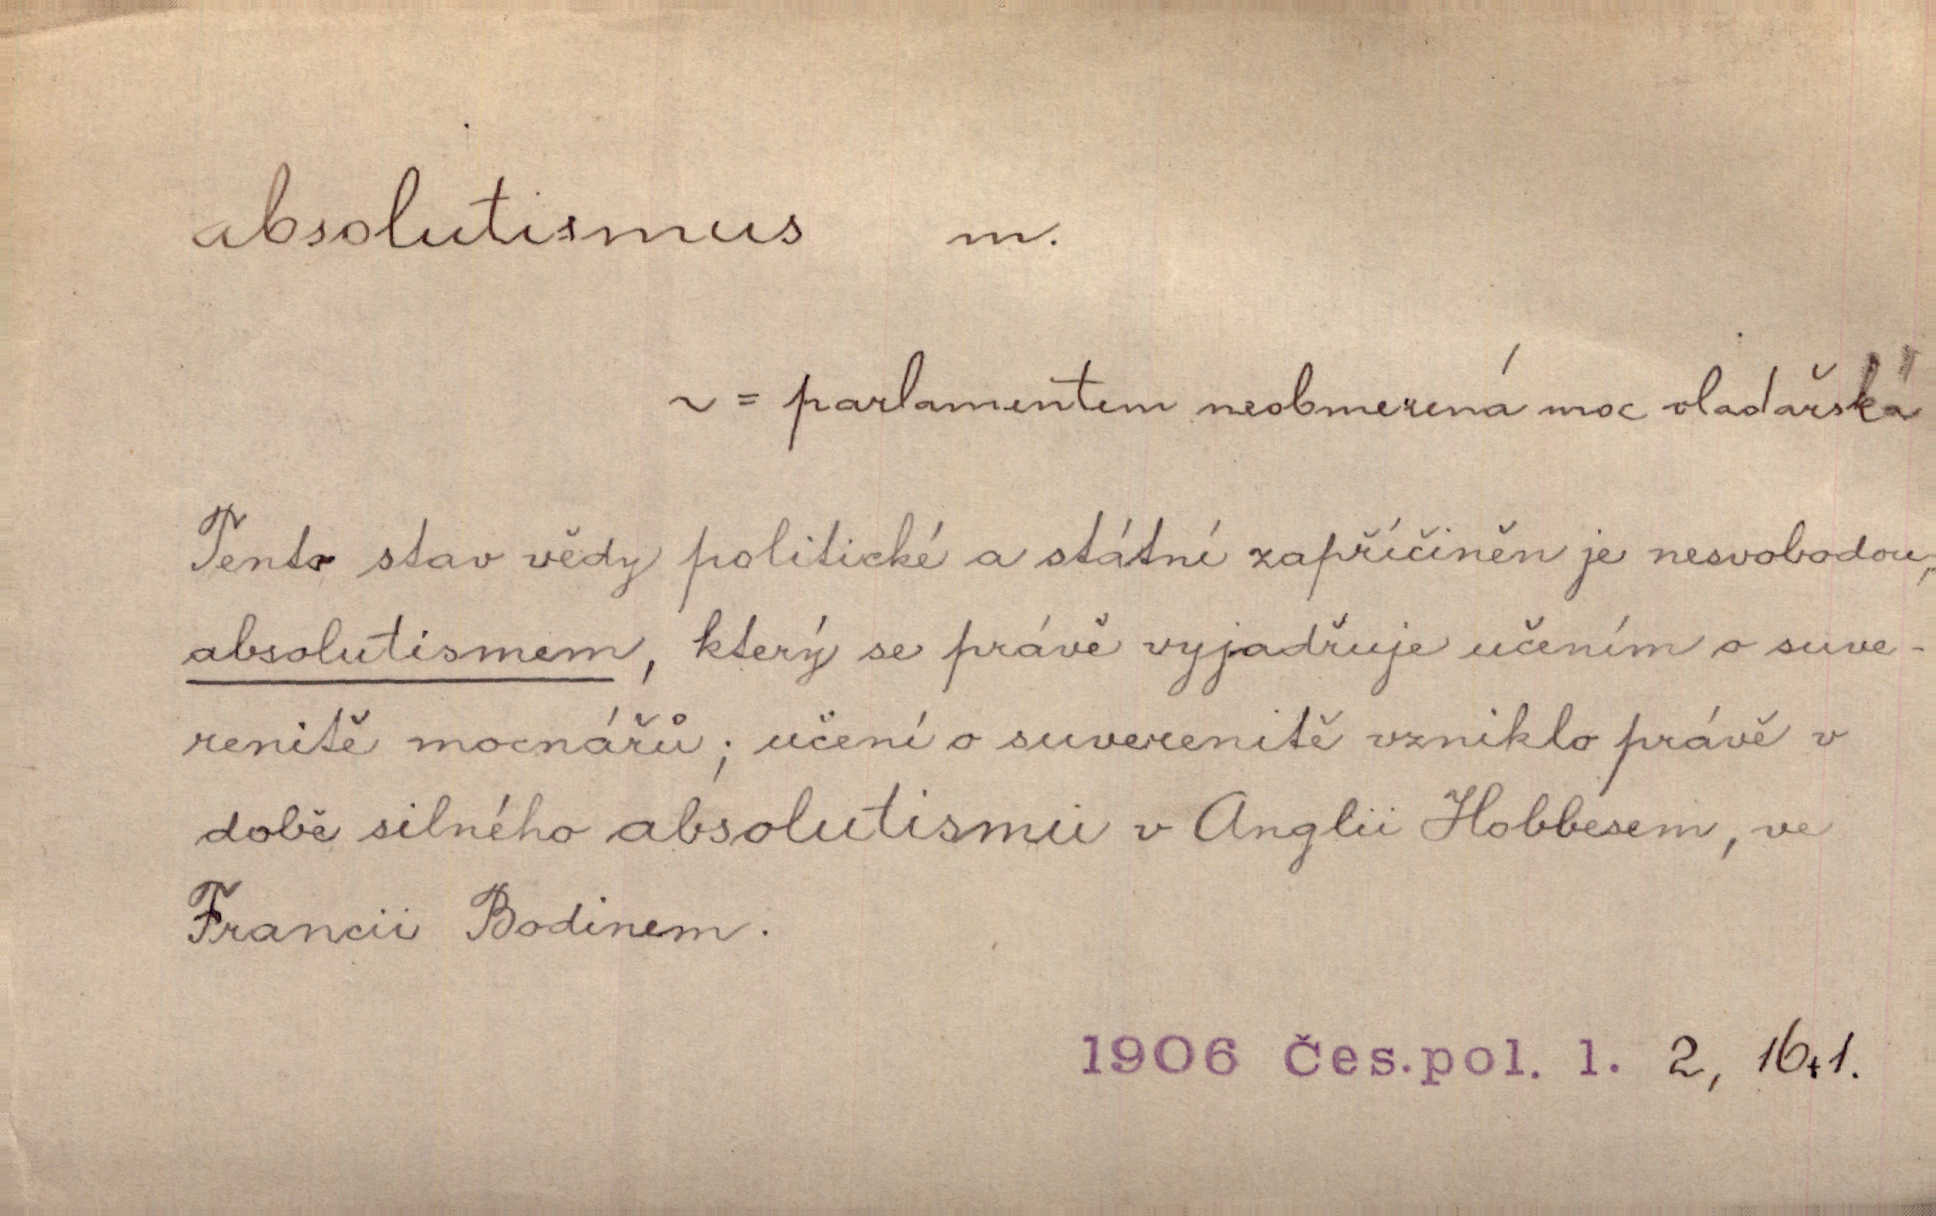 absolutismus m.
~ = parlamentem neobmezená moc vladařská
Tento stav vědy politické a státní zapříčiněn je nesvobodou,
absolutismem, který se právě vyjadřuje učením o suve-
renitě mocnářů; učení o suverenitě vzniklo právě v
době silného absolutismu v Anglii Hobbesem, ve
Francii Bodinem.
1906 Čes. pol. l. 2, 16,1.